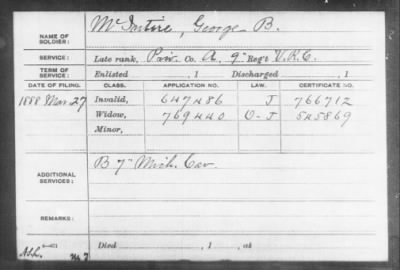 NAME OF SOLDIER: McIntire, George B.
SERVICE: Late rank, Priv. Co. A, 9" Reg't V.R.C.
TERM OF SERVICE: Enlisted , 1 Discharged , 1
DATE OF FILING. CLASS. APPLICATION NO. LAW. CERTIFICATE NO.
1888 Mar. 27 Invalid, 647486 J 766712
Widow, 769440 O-J 545869
Minor,
ADDITIONAL SERVICES: B 7" Mich. Cav.
REMARKS:
Died , 1 , at